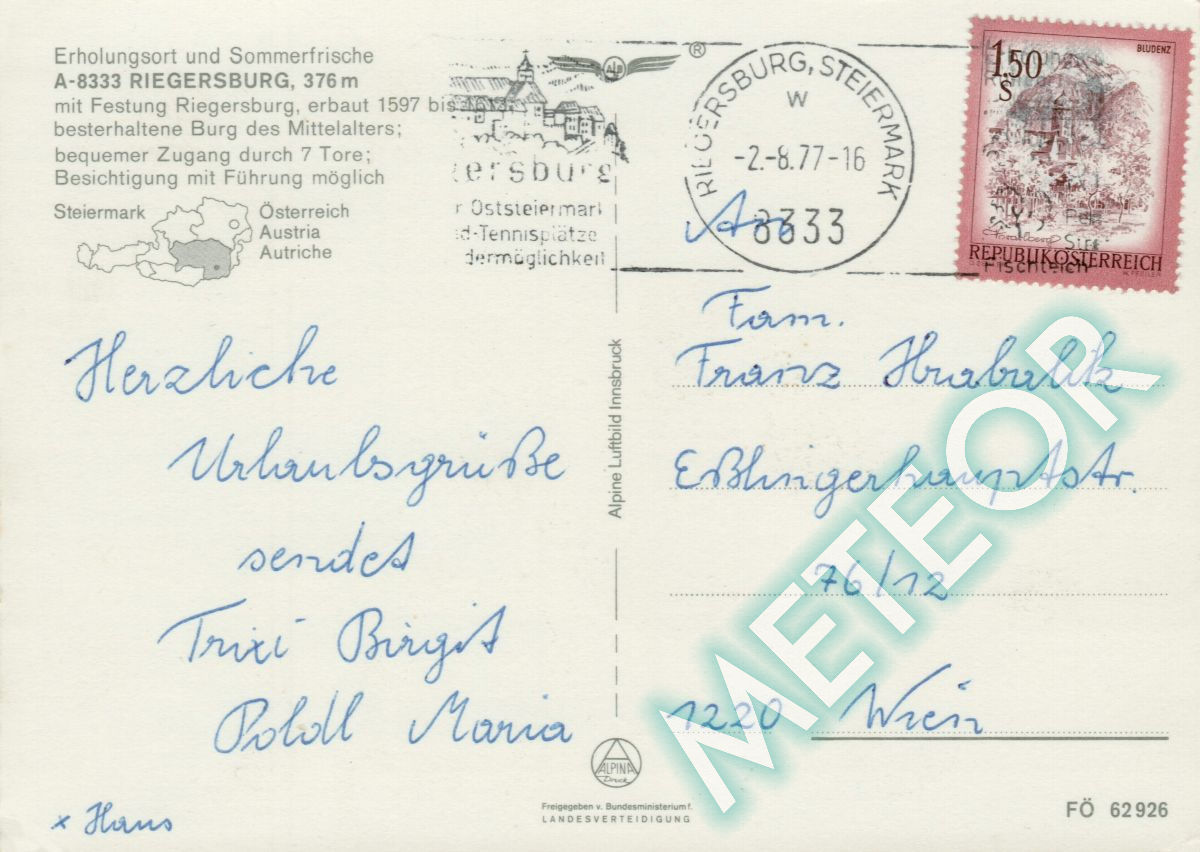 Erholungsort und Sommerfrische
A-8333 RIEGERSBURG, 376 m
mit Festung Riegersburg, erbaut 1597 bis 1613;
besterhaltene Burg des Mittelalters;
bequemer Zugang durch 7 Tore;
Besichtigung mit Führung möglich
Steiermark
Österreich
Austria
Autriche
®
ersburg
r Oststeiermark
d-Tennisplätze
dermöglichkeit
RIEGERSBURG, STEIERMARK
w
-2.-8.77-16
8333
BLUDENZ
1.50
S
Vorarlberg
REPUBLIK ÖSTERREICH
Fischteich
An
Herzliche
Urlaubsgrüße
sendet
Trixi Birgit
Poldl Maria
x Hans
Alpine Luftbild Innsbruck
Fam.
Franz Hrabalik
Eßlingerhauptstr.
76/12
1220 Wien
METEOR
ALPINA
Druck
Freigegeben v. Bundesministerium f.
LANDESVERTEIDIGUNG
FÖ 62 926